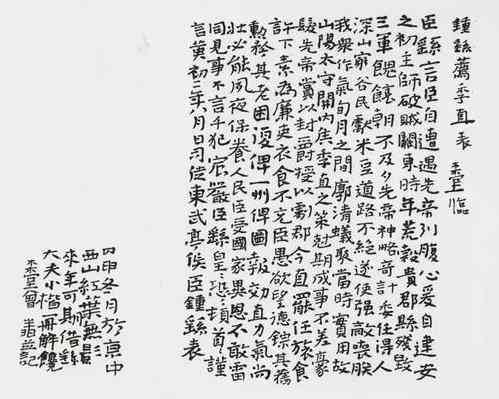 鍾繇薦季直表 臨
臣繇言臣自遭遇先帝列腹心爰自建安
之初王師破賊關東時年荒穀貴郡縣殘毀
三軍餽饟朝不及夕先帝神略奇計委任得人
深山窮谷民獻米豆道路不絕遂使強敵喪膽
我眾作氣旬月之間廓清蟻聚當時實用故
山陽太守關內侯季直之策剋期成事不差豪
髮先帝賞以封爵授以劇郡今直罷任旅食
許下素為廉吏衣食不充臣愚欲望德錄其舊
勳矜其老困復俾一州俾圖報効直力氣尚
壯必能夙夜保養人民臣受國家異恩不敢雷
同見事不言干犯宸嚴臣繇皇恐頓首謹
言黃初二年八月日司徒東武亭侯臣鍾繇表
申冬月於京中
西山紅葉無影
來年可具借
大夫小酌一冊解饞
並記